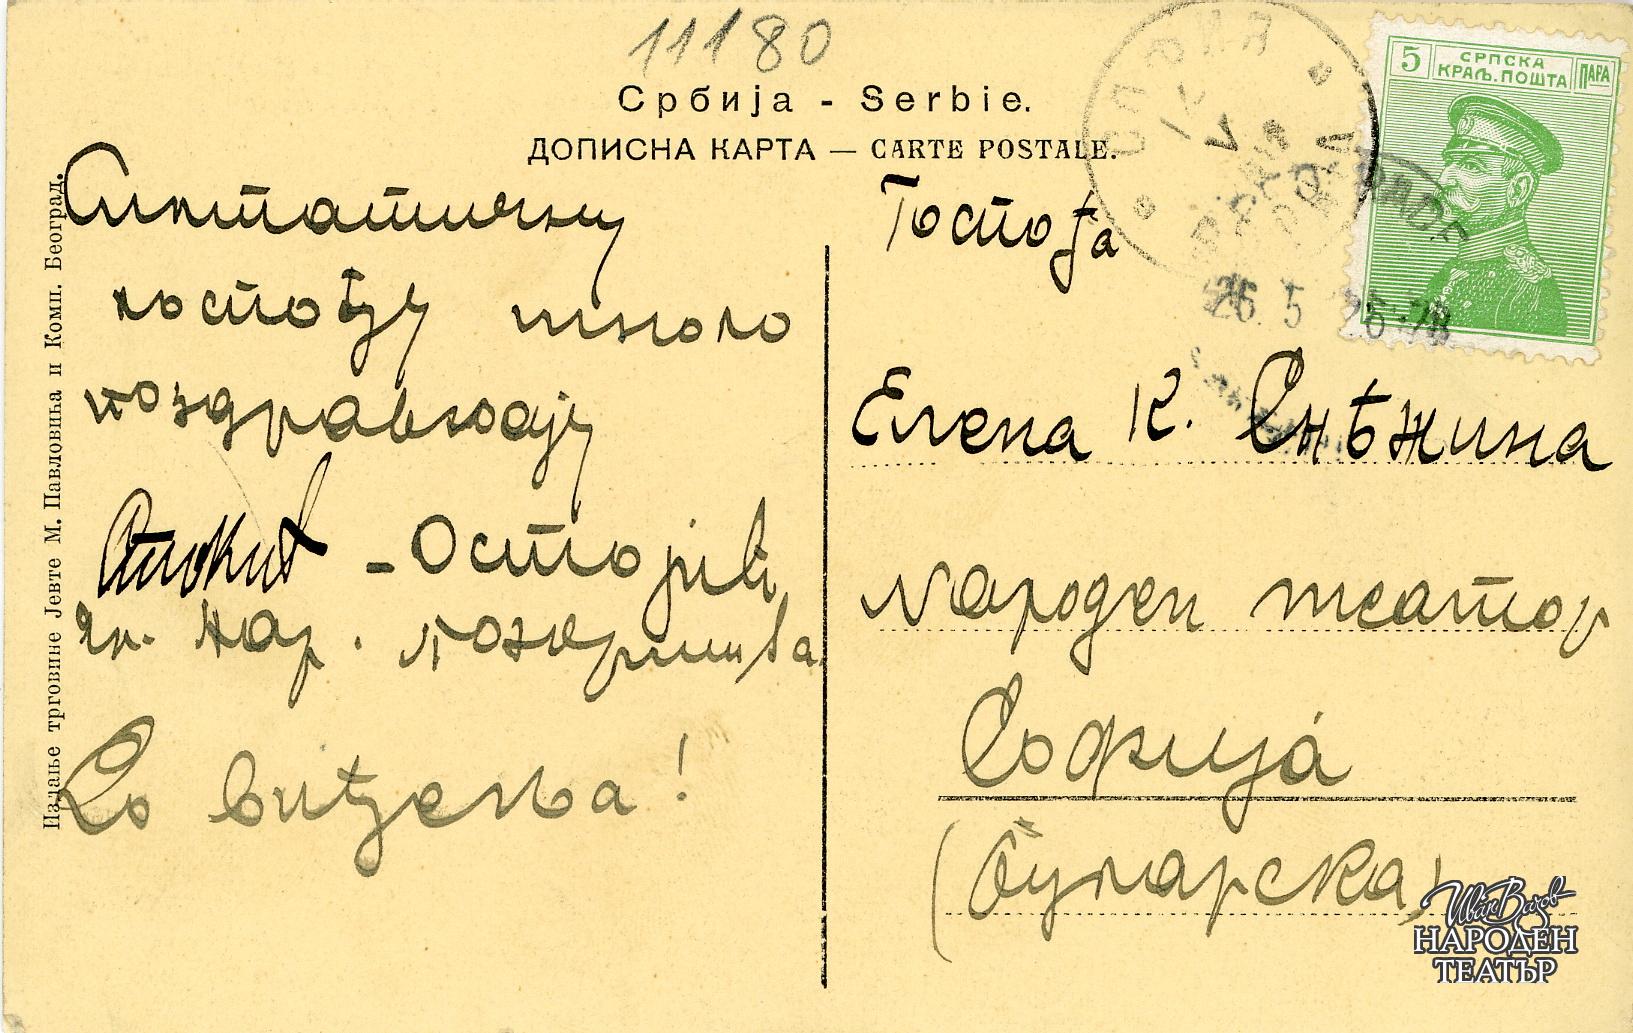 11180
Србија - Serbie.
ДОПИСНА КАРТА — CARTE POSTALE.
5 СРПСКА ПАРА
КРАЉ. ПОШТА
Симпатичну
госпођу много
поздрављају
- Остојић
чл. нар. позоришта.
До виђења!
Госпођа
Елена К. Снѣжина
Народен театор
Софија
(Бугарска)
26. 5
Издање трговине Јевте М. Павловића и Комп. Београд.
Иван Вазов
НАРОДЕН
ТЕАТЪР